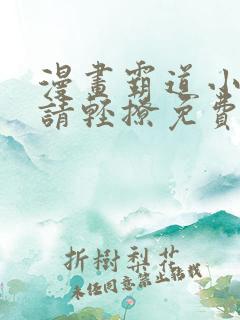 漫畫霸道小
請輕撩免費
折樹梨花
未經同意禁止轉載